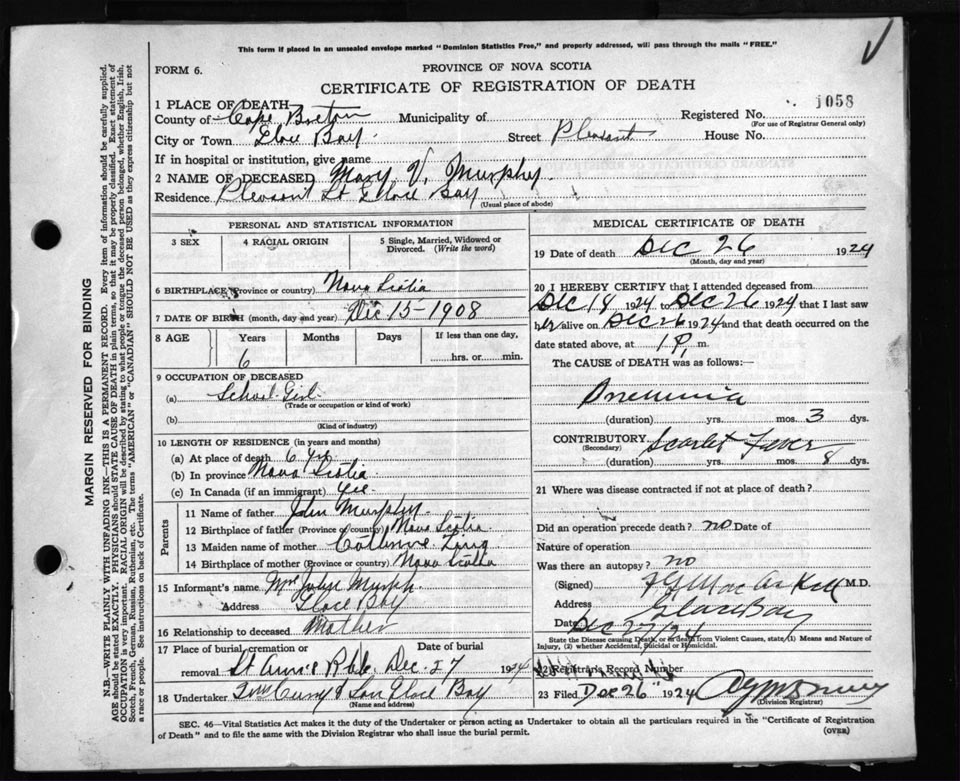 This form if placed in an unsealed envelope marked "Dominion Statistics Free," and properly addressed, will pass through the mails "FREE."
FORM 6.
PROVINCE OF NOVA SCOTIA
CERTIFICATE OF REGISTRATION OF DEATH
1 PLACE OF DEATH
Registered No. 1058
(For use of Registrar General only)
County of Cape Breton Municipality of
City or Town Glace Bay. Street Pleasant House No.
If in hospital or institution, give name
2 NAME OF DECEASED Mary V. Murphy
Residence Pleasant St Glace Bay
(Usual place of abode)
PERSONAL AND STATISTICAL INFORMATION
3 SEX
4 RACIAL ORIGIN
5 Single, Married, Widowed or Divorced. (Write the word)
6 BIRTHPLACE (Province or country) Nova Scotia
7 DATE OF BIRTH (month, day and year) Dec 15-1908
8 AGE Years Months Days If less than one day,
6 hrs. or min.
9 OCCUPATION OF DECEASED
(a) School Girl
(Trade or occupation or kind of work)
(b)
(Kind of industry)
10 LENGTH OF RESIDENCE (in years and months)
(a) At place of death 6 yrs
(b) In province Nova Scotia
(c) In Canada (if an immigrant)
Parents
11 Name of father John Murphy
12 Birthplace of father (Province or country) Nova Scotia
13 Maiden name of mother Catherine
14 Birthplace of mother (Province or country) Nova Scotia
15 Informant's name Mrs John Murph
Address Glace Bay
16 Relationship to deceased Mother
17 Place of burial, cremation or removal Date of burial
St Anne's Dec. 27 1924
18 Undertaker & Son Glace Bay
(Name and address)
MEDICAL CERTIFICATE OF DEATH
19 Date of death Dec 26 1924
(Month, day and year)
20 I HEREBY CERTIFY that I attended deceased from
Dec 18 1924 to Dec 26 1924 that I last saw
her alive on Dec 26 1924 and that death occurred on the
date stated above, at 1 P. m.
The CAUSE of DEATH was as follows:—
(duration) yrs. mos. 3 dys.
CONTRIBUTORY Scarlet Fever
(Secondary)
(duration) yrs. mos. 8 dys.
21 Where was disease contracted if not at place of death?
Did an operation precede death? no Date of
Nature of operation
Was there an autopsy? no
(Signed) M.D.
Address Glace Bay
Date Dec 27/24
State the Disease causing Death, or in death from Violent Causes, state (1) Means and Nature of
Injury, (2) whether Accidental, Suicidal or Homicidal.
22 Registrar's Record Number
23 Filed Dec 26 1924
(Division Registrar)
SEC. 46—Vital Statistics Act makes it the duty of the Undertaker or person acting as Undertaker to obtain all the particulars required in the "Certificate of Registration
of Death" and to file the same with the Division Registrar who shall issue the burial permit.
(OVER)
MARGIN RESERVED FOR BINDING
N.B.—WRITE PLAINLY WITH UNFADING INK—THIS IS A PERMANENT RECORD. Every item of information should be carefully supplied.
AGE should be stated EXACTLY. PHYSICIANS should STATE CAUSE OF DEATH in plain terms, so that it may be properly classified. Exact statement of
OCCUPATION is very important. RACIAL ORIGIN will be described by stating to what people or tongue the deceased person belonged, whether English, Irish,
Scotch, French, German, Russian, Ruthenian, etc. The terms "AMERICAN" or "CANADIAN" SHOULD NOT BE USED as they express citizenship but not
a race or people. See instructions on back of Certificate.